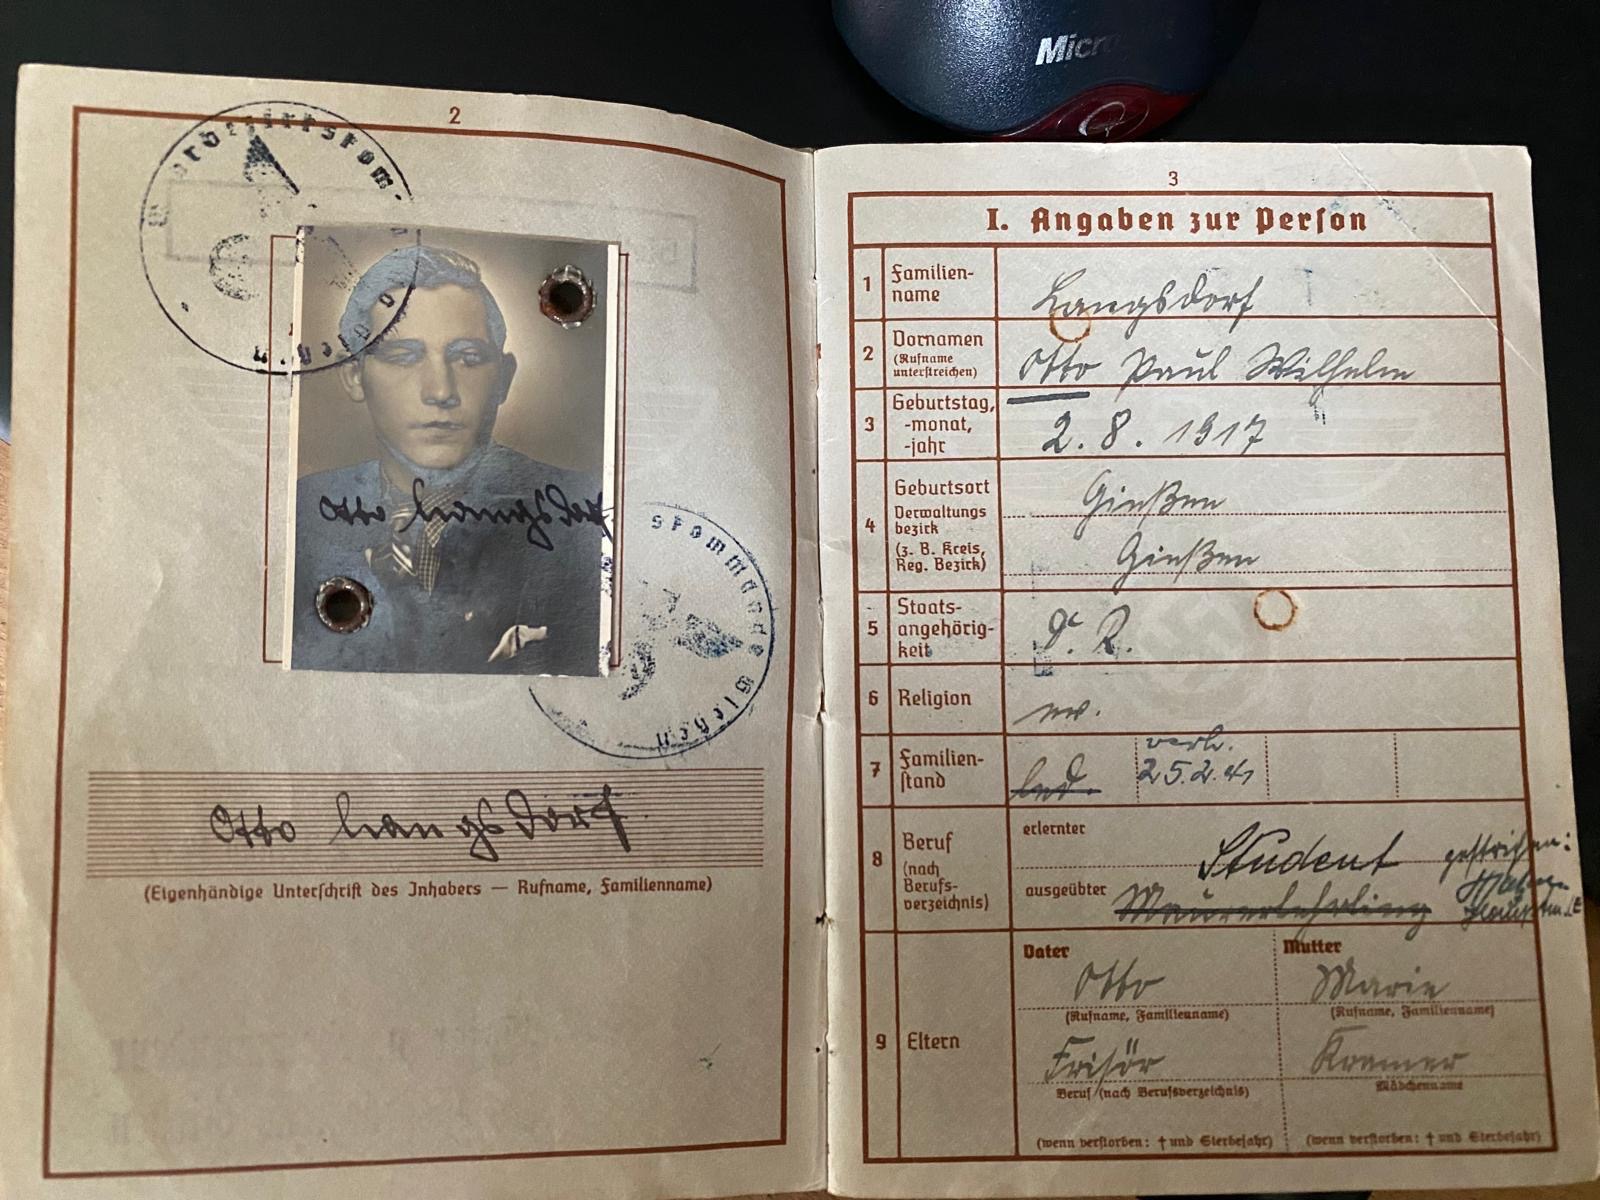 Micro
2
Wehrbezirkskom-
Gießen
Otto Langsdorf
skommando Gießen
Otto Langsdorf
(Eigenhändige Unterschrift des Inhabers — Rufname, Familienname)
3
I. Angaben zur Person
1 Familien-
name
Langsdorf
2 Vornamen
(Rufname
unterstreichen)
Otto Paul Wilhelm
3 Geburtstag,
-monat,
-jahr
2. 8. 1917
4 Geburtsort
Gießen
Verwaltungs
bezirk
(z. B. Kreis,
Reg. Bezirk)
Gießen
5 Staats-
angehörig-
keit
D. R.
6 Religion
ev.
7 Familien-
stand
led.
verh.
25.2.41
8 Beruf
(nach
Berufs-
verzeichnis)
erlernter
Student
gestrichen:
ausgeübter
Maurerlehrling
9 Eltern
Vater
Otto
(Rufname, Familienname)
Frisör
Beruf (nach Berufsverzeichnis)
(wenn verstorben: † und Sterbejahr)
Mutter
Marie
(Rufname, Familienname)
Kramer
Mädchenname
(wenn verstorben: † und Sterbejahr)